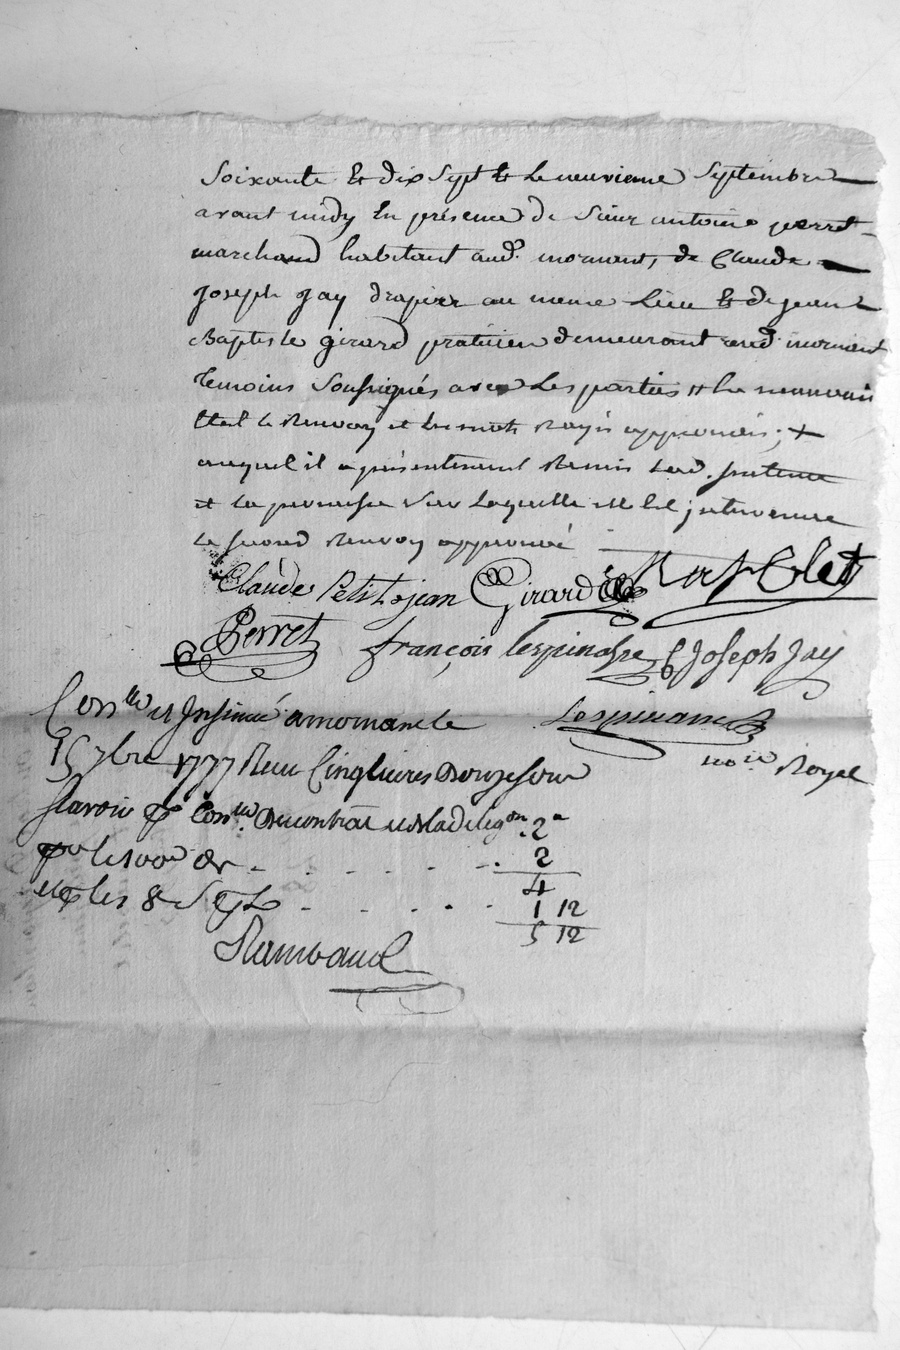 Soixante & dix Sept & Le neuvieme Septembre
avant midy En présence de Sieur antoine perret
marchand habitant aud. mornant, de Claude
Joseph Jay drapier au meme Lieu & de jean
Baptiste girard praticien demeurant aud. mornant
Temoins Soussignés avec Les parties
le Renvoy et les mots Rayés approuvés; +
auquel il a présentement Remis Lad.
et la promesse sur Laquelle elle est intervenue
Le second Renvoy approuvé
Claude Petitjean Girard
Perret françois Lespinasse C Joseph Jay
Con.lle et Insinué a mornant le Lespinasse
15 7bre 1777 Reçu Cinq Livres Douze sous no.re Royal
Savoir p Con.lle Du contrat 2
p le 100e d. 2
4
et p les 8 s p L 1 12
5 12
Rambaud